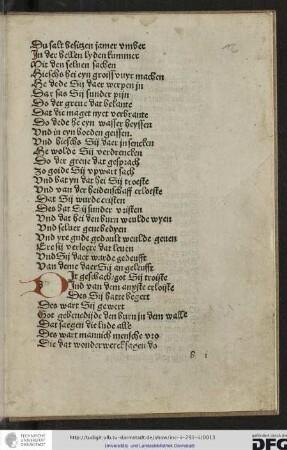 Du salt besitzen jamer vmber
In der hellen lyden kummer
Mit den seluen sachen
Hiesch hei eyn groiss vuyr machen
He dede Sij daer werpen in
Dar sas Sij sunder pijn
Do der greue dat bekante
Dat die maget nyet verbrante
Do dede he eyn wasser heyssen
Vnd in eyn boeden geissen
Vnd hiesch Sij daer in sencken
He wolde Sij verdrencken
Do der greue dat gesprach
Zo goide Sij vpwart sach
Vnd bat yn dat hei Sij troeste
Vnd van der heidenschaff erloeste
Dat Sij wurde cristen
Des bat Sij sunder vristen
Vnd dat hei den burn weulde wyen
Vnd seluer genebedyen
Vnd yre gude gedoult weulde geuen
Ere sij verloere dat leuen
Vnd Sij daer warde gedeufft
Van deme daer Sij an geleufft
Dit geschach got Sij troiste
Vnd van dem anxste erloiste
Des Sij hatte begert
Des wart Sij gewert
Got gebenedijde den burn in dem walle
Dat saegen die lude alle
Des wart mannich mensche vro
Die dat wonderwerck sagen do
B i
TECHNISCHE
UNIVERSITÄT
DARMSTADT
http://tudigit.ulb.tu-darmstadt.de/show/inc-ii-293-ii/0013
Universitäts- und Landesbibliothek Darmstadt
gefördert durch die
DFG